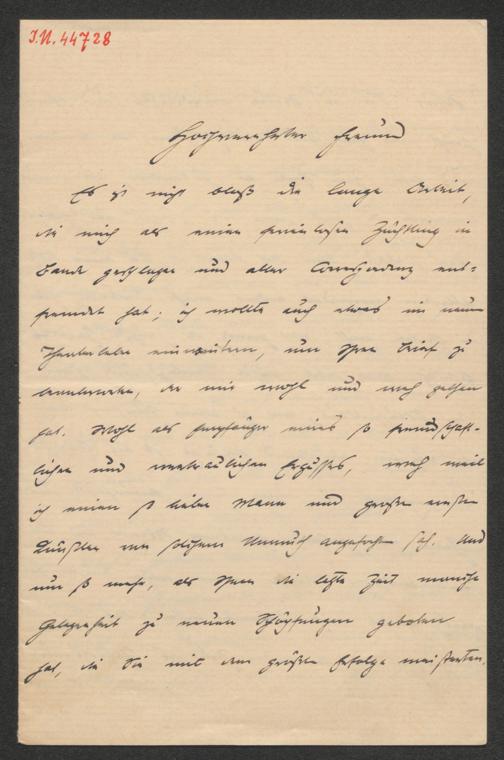 I.N. 44728
Hochverehrter Freund
Es ist nicht bloß die lange Arbeit,
die mich als einen Züchtling in
Bande geschlagen und aller Correspondenz ent-
fremdet hat; ich wollte auch etwas im neuen
Theaterleben, um Ihren Brief zu
beantworten, der mir wohl und weh gethan
hat. Wohl als Empfänger eines so freundschaft-
lichen und vertraulichen Ergusses, weh weil
ich einen so lieben Mann und großen ernsten
Künstler von solchem Unmuth angefochten sah. Und
um so mehr, als Ihnen die letzte Zeit manche
Gelegenheit zu neuen Schöpfungen geboten
hat, die Sie mit dem größten Erfolge meisterten.